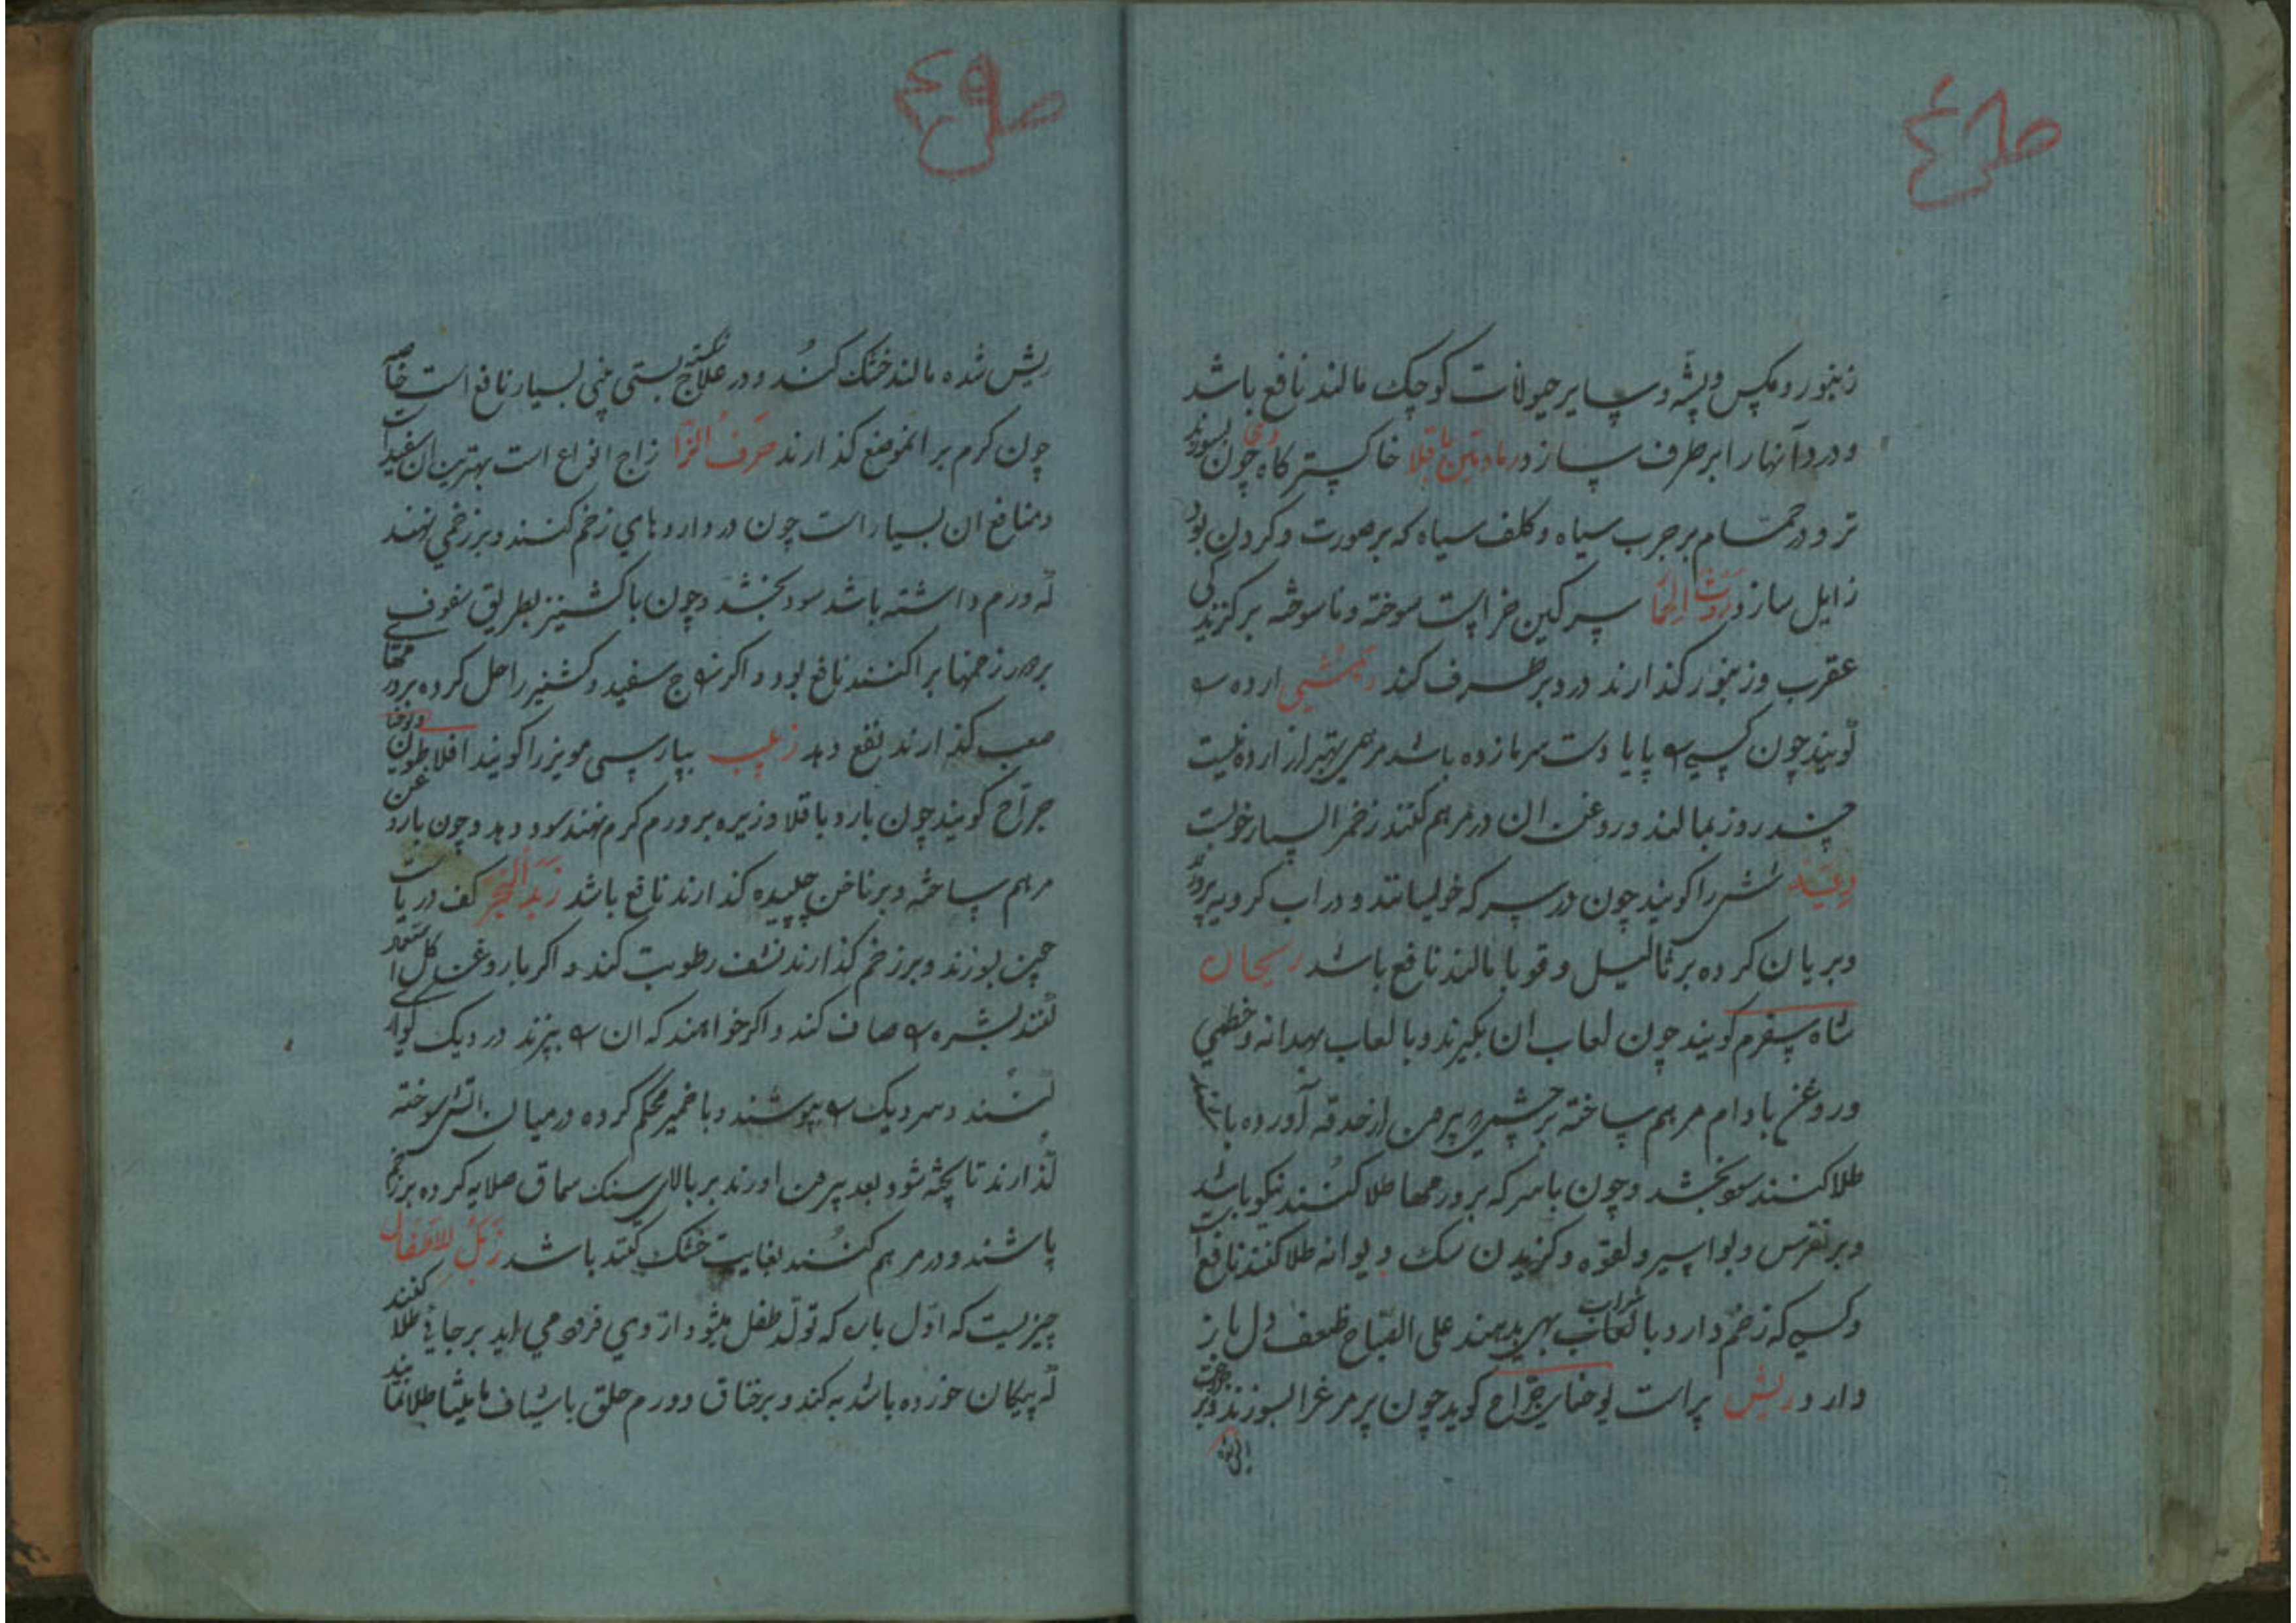 زنبور و مکس و پشه و سایر حیوانات کوچک مالند نافع باشد
و درد آنها را برطرف سازد رماد تبن باقلا خاکستر کاه چون بسوزند
تر و در حمام بر جرب سیاه و کلف سیاه که بر صورت و کردن بود
زایل سازد روث الحما سرکین خر است سوخته و ناسوخته بر کزیدکی
عقرب و زنبور کذارند درد برطرف کند ارده را
کویند چون کسی را پا یا دست سرما زده باشد مرهمی بهتر از ارده نیست
چند روز بمالند و روغن ان در مرهم کنند زخم را بسیار خوبست
شش را کویند چون در سرکه خولیسانند و در اب کرویه پرورد
و بریان کرده بر ثالیل و قوبا مالند نافع باشد ریحان
شاه سفرم کویند چون لعاب ان بکیرند و با لعاب بهدانه و خطمی
و روغن بادام مرهم ساخته بر چشمی که بیرون از حدقه آورده باشند
طلا کنند سود بخشد و چون با سرکه بر ورمها طلا کنند نیکو باشد
و بر نقرس و بواسیر و لقوه و کزیدن سک دیوانه طلا کنند نافع است
و کسی که زخم دارد با لعاب شراب بهی بدهند علی الصباح ضعف دل باز
دارد ریش پر است یوحنای جراح کوید چون پر مرغ را بسوزند و بر
ریش شده مالند خشک کند و در علاج بستی منی بسیار نافع است خاصه
چون کرم بر انموضع کذارند حرف الزا زاج انواع است بهترین ان سفید است
و منافع ان بسیار است چون در داروهای زخم کنند و بر زخمی نهند
که ورم داشته باشد سود بخشد و چون با کشنیز بطریق سفوف
بر سر زخمها پراکنند نافع بود و اکر زاج سفید و کشنیز را حل کرده بر ورمهای
صعب کذارند نفع دهد زبیب بپارسی مویز را کویند افلاطون و یوحنا
جراح کویند چون بارد باقلا و زیره بر ورم کرم نهند سود دهد و چون با روغن
مرهم ساخته و بر ناخن چلیده کذارند نافع باشد زبد البحر کف دریاست
چون بسوزند و بر زخم کذارند نشف رطوبت کند و اکر با روغن کل استعمال
کنند بشره را صاف کند و اکر خواهند که ان را بپزند در دیک
کنند و سر دیک را بپوشند و با خمیر محکم کرده در میان اتش سوخته
کذارند تا پخته شود بعد بیرون اورند بر بالای سنک سماق صلایه کرده بر زخم
پاشند و در مرهم کنند بغایت خشک کننده باشد زبل الاطفال
چیزیست که اول بار که تولد طفل میشود از وی فرو می اید بر جائی طلا کنند
که پیکان خورده باشد به کند و بر خناق و ورم حلق با شیاف مامیثا طلا نمایند